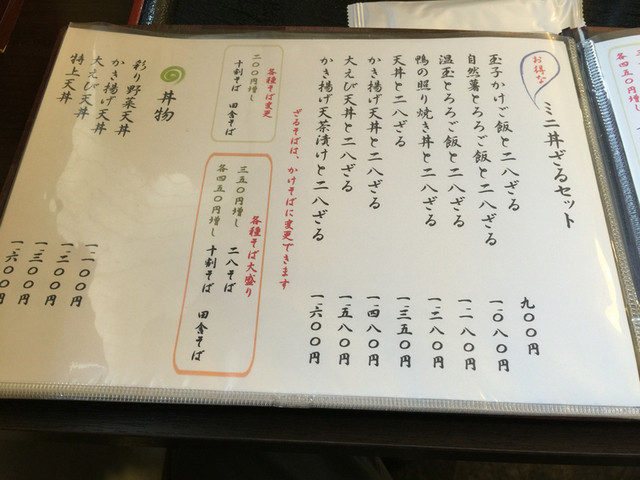 お得な
ミニ丼ざるセット
玉子かけご飯と二八ざる 九〇〇円
自然薯とろろご飯と二八ざる 一、〇八〇円
温玉とろろご飯と二八ざる 一、一八〇円
鴨の照り焼き丼と二八ざる 一、二八〇円
天丼と二八ざる 一、三五〇円
かき揚げ天丼と二八ざる 一、四八〇円
大えび天丼と二八ざる 一、五八〇円
かき揚げ天茶漬けと二八ざる 一、六〇〇円
ざるそばは、かけそばに変更できます
各種そば変更
二〇〇円増し 十割そば 田舎そば
各種そば大盛り
三五〇円増し 二八そば
各四五〇円増し 十割そば 田舎そば
丼物
彩り野菜天丼 一、一〇〇円
かき揚げ天丼 一、二〇〇円
大えび天丼 一、三〇〇円
特上天丼 一、六〇〇円